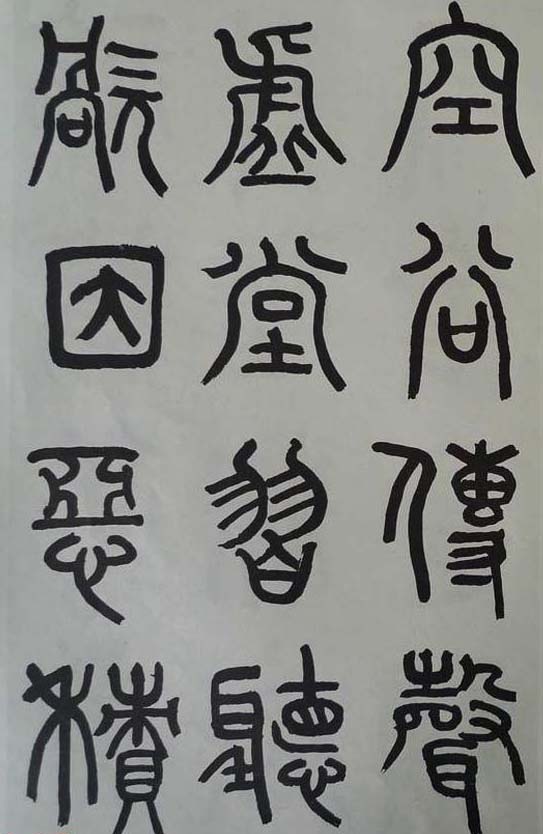 空谷傳聲
虛堂習聽
旤因惡積